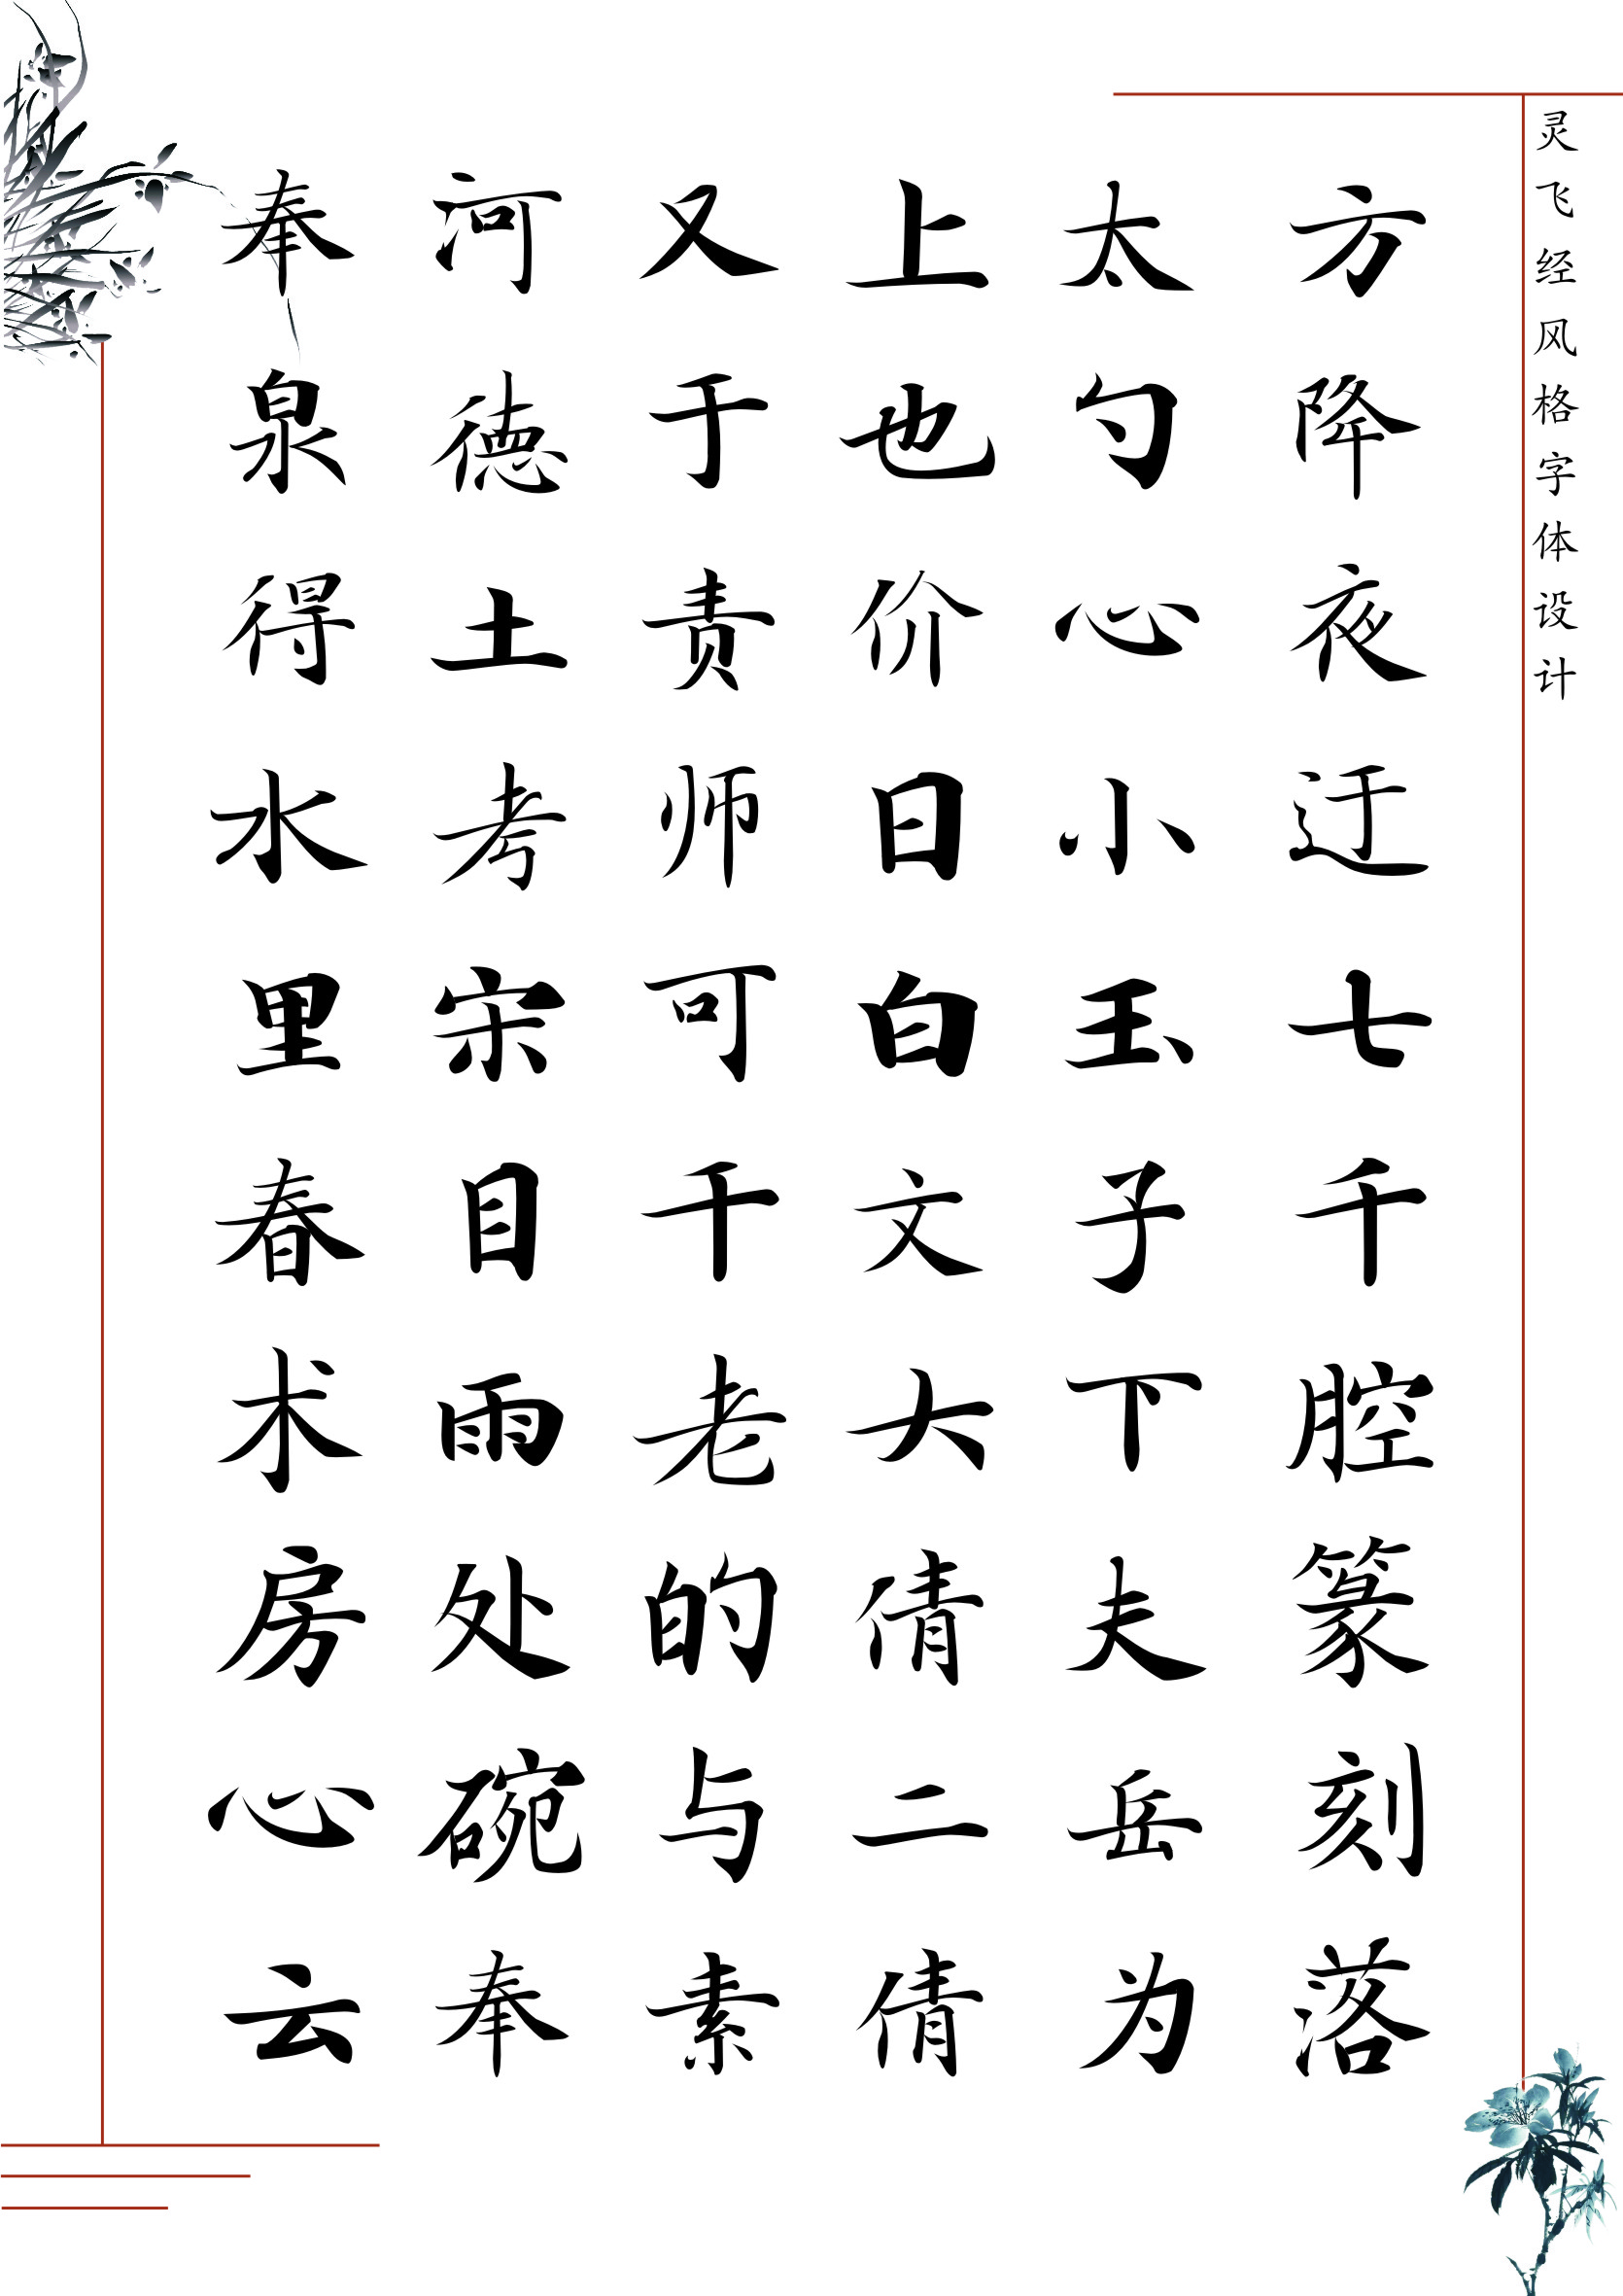 灵飞经风格字体设计
方降夜迂七千腔篆刻落
太勺心小玉子下夫岳为
上也价日白文大倩二倩
又于责师可干老的与素
河德土考宋目雨处碗奉
奉泉得水里春术房心云